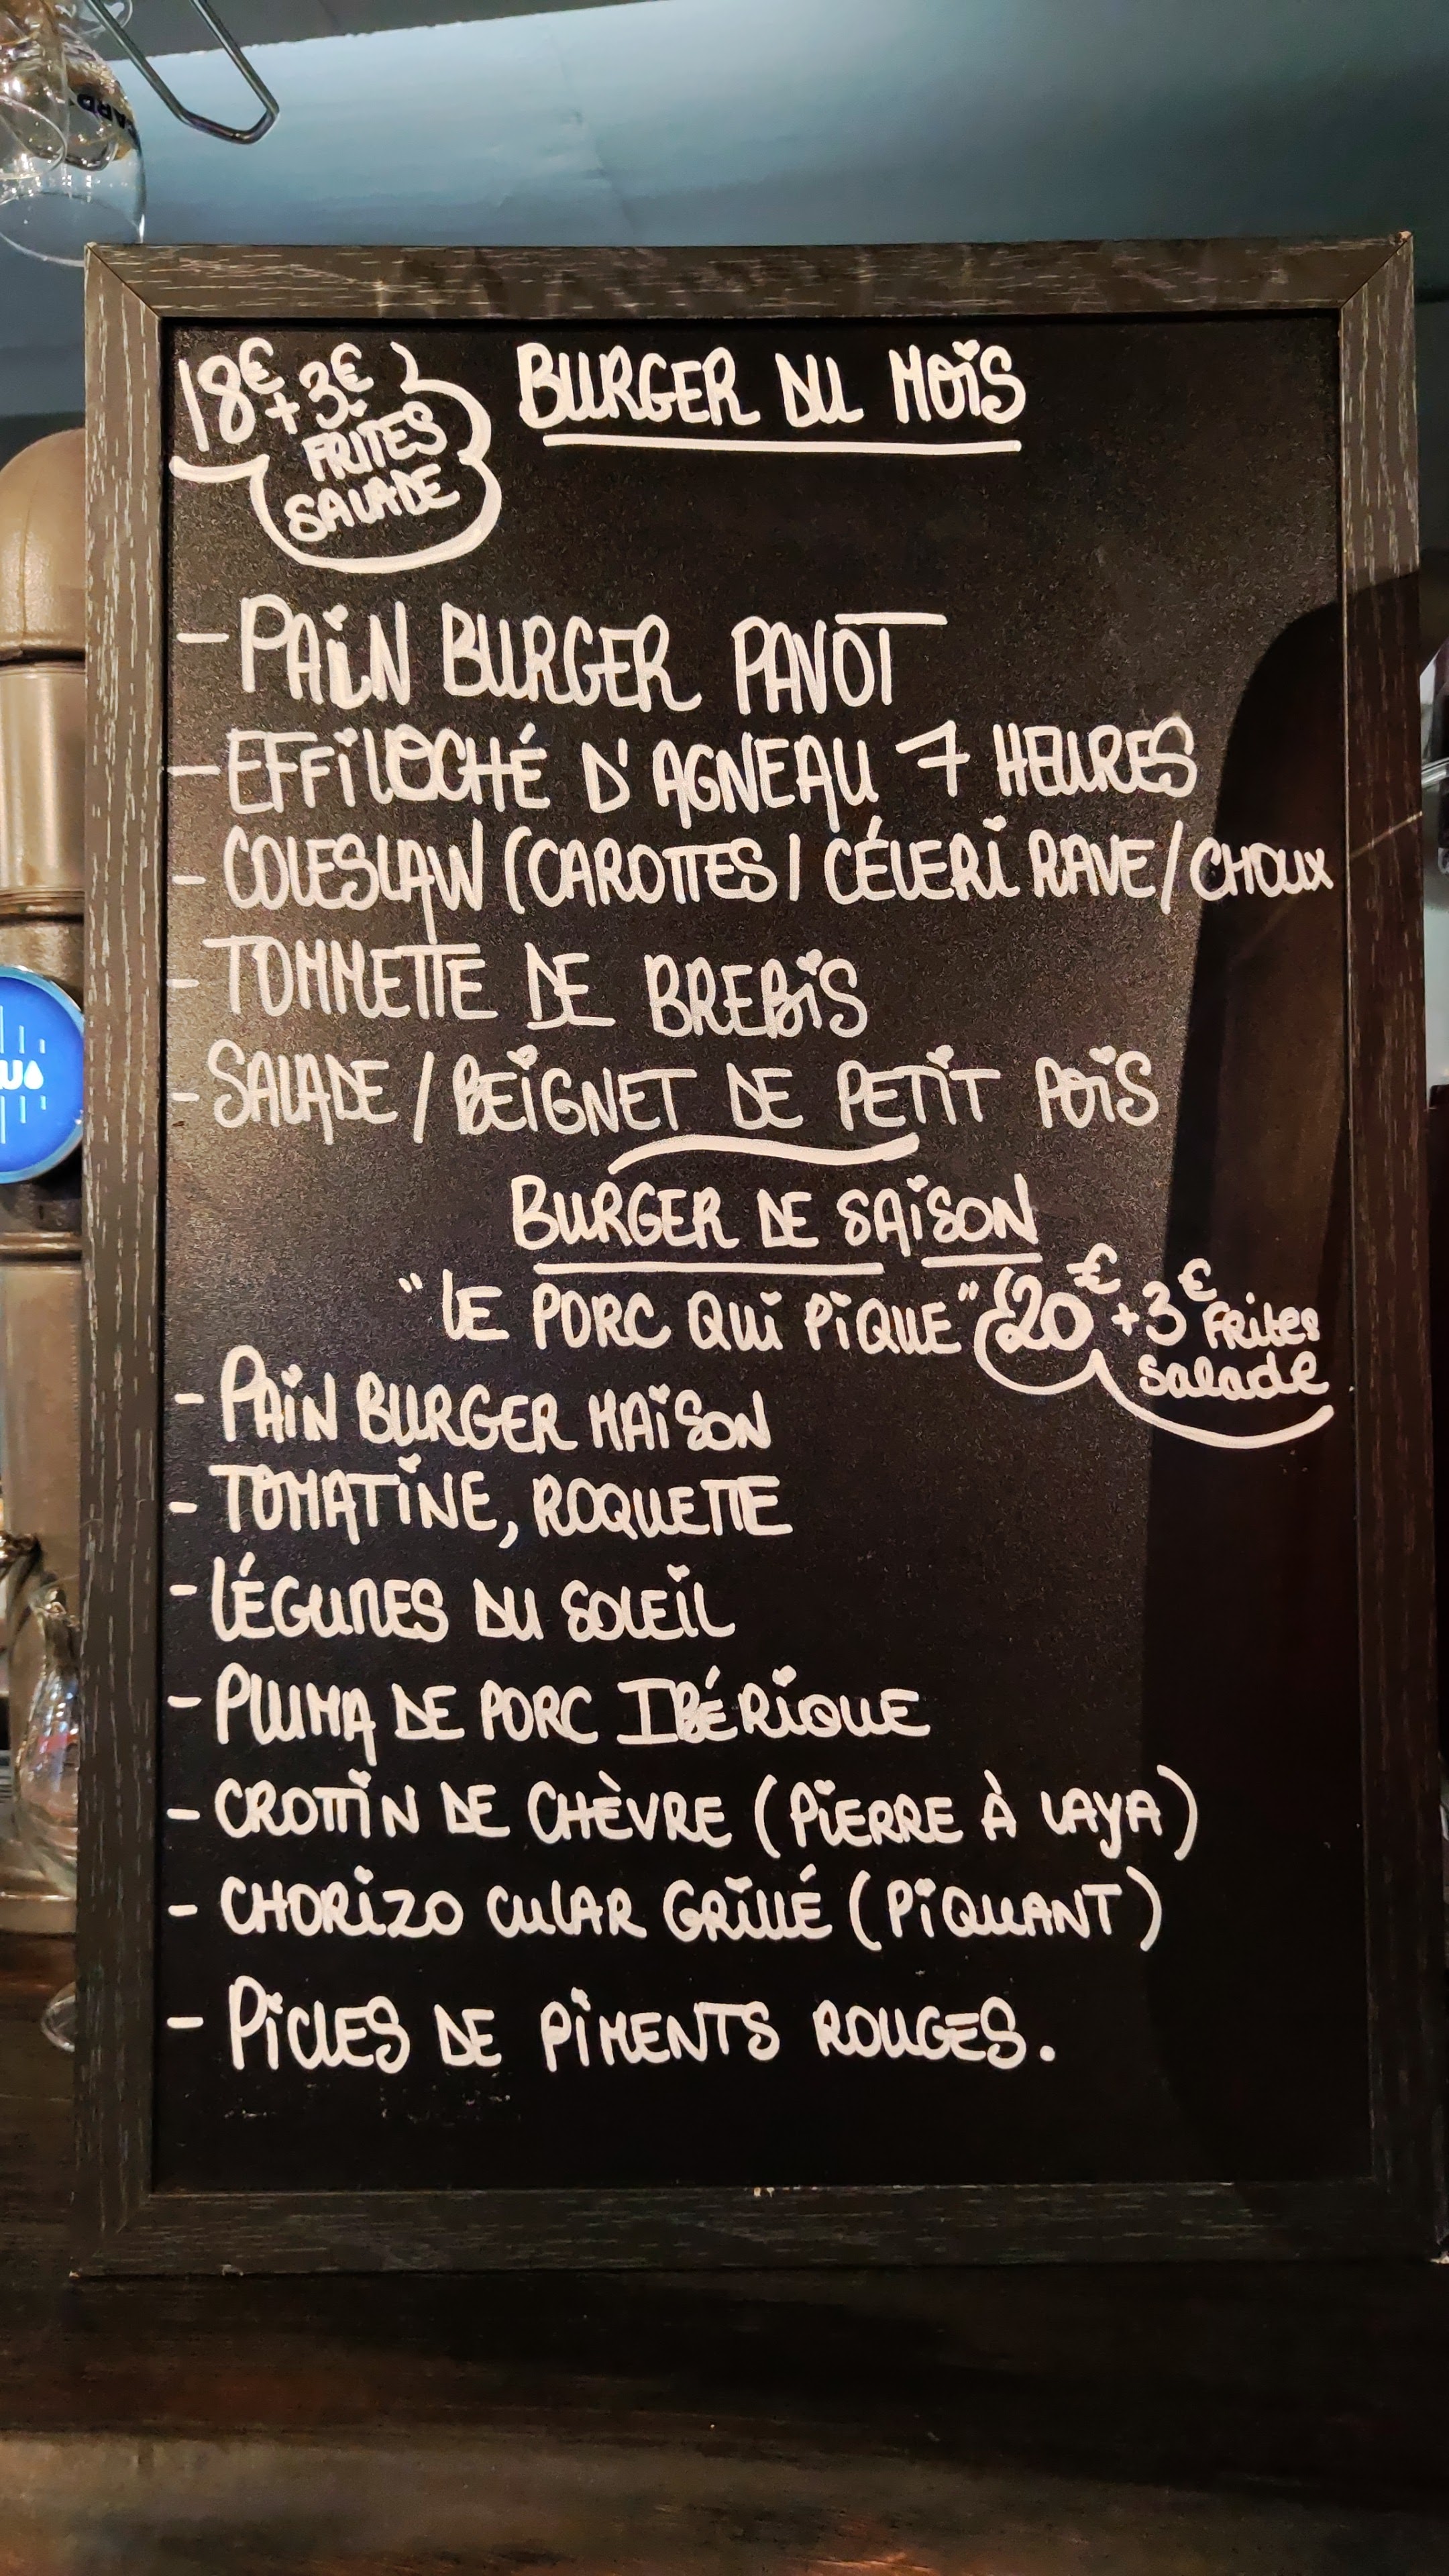 18€ + 3€
FRITES
SALADE
BURGER DU MOIS
- PAIN BURGER PAVOT
- EFFILOCHÉ D'AGNEAU 7 HEURES
- COLESLAW (CAROTTES / CÉLERI RAVE / CHOUX
- TOMMETTE DE BREBIS
- SALADE / BEIGNET DE PETIT POIS
BURGER DE SAISON
"LE PORC QUI PIQUE" 20€ + 3€ Frites
salade
- PAIN BURGER MAISON
- TOMATINE, ROQUETTE
- LÉGUMES DU SOLEIL
- PLUMA DE PORC IBÉRIQUE
- CROTTIN DE CHÈVRE (PIERRE À LAYA)
- CHORIZO CULAR GRILLÉ (PIQUANT)
- PICLES DE PIMENTS ROUGES.